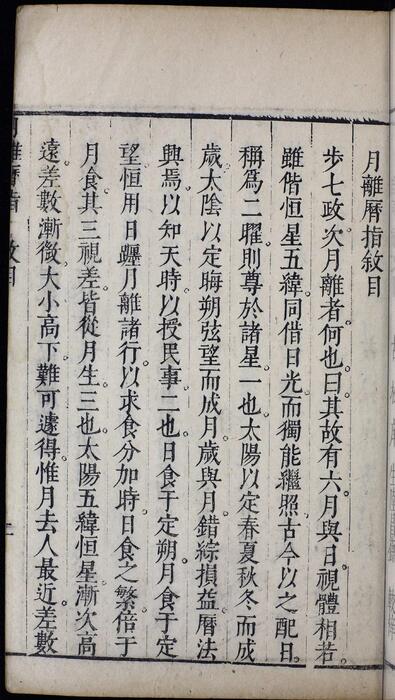 月離曆指敘目
步七政次月離者何也曰其故有六月與日視體相若
雖偕恒星五緯同借日光而獨能繼照古今以之配日
稱為二曜則尊於諸星一也太陽以定春夏秋冬而成
歲太陰以定晦朔弦望而成月歲與月錯綜損益曆法
興焉以知天時以授民事二也日食于定朔月食于定
望恒用日躔月離諸行以求食分加時日食之繁倍于
月食其三視差皆從月生三也太陽五緯恒星漸次高
遠差數漸微大小高下難可遽得惟月去人最近差數
月離曆指 敘目 一